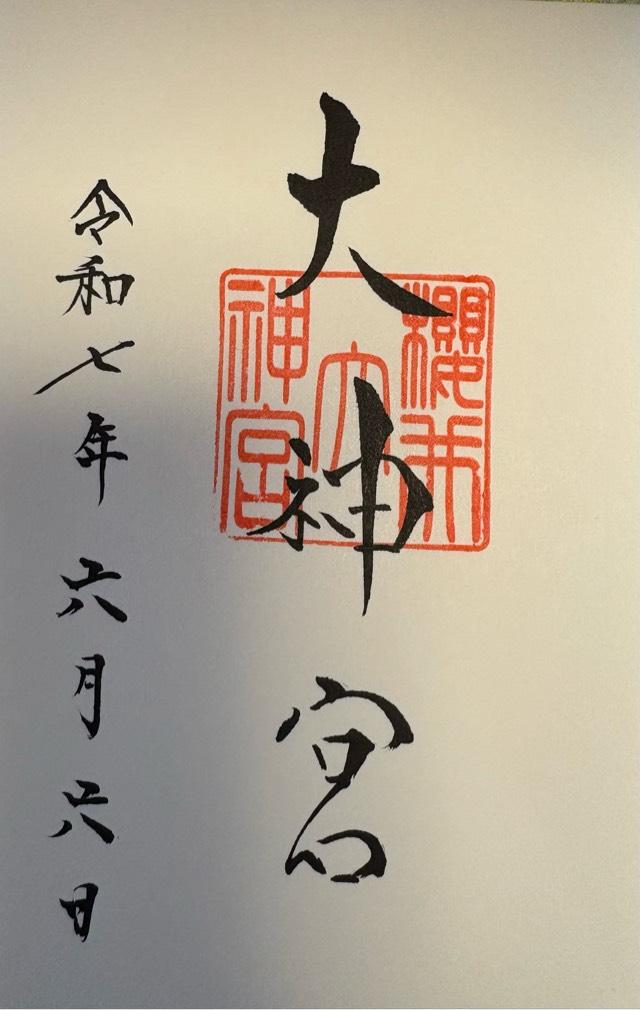 大神宮
櫻井
大
神宮
令和七年六月六日